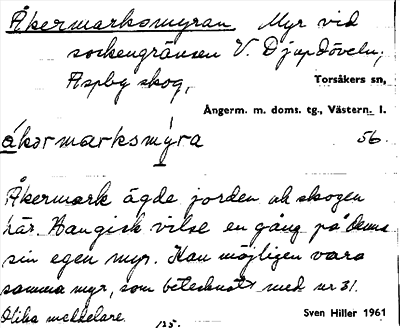 Åkermarksmyran. Myr vid
sockengränsen V. Djupdöveln,
Aspby skog,
Torsåkers sn,
Ångerm. m. doms. tg., Västern. l.
åkərmarksmýra 56.
Åkermark ägde jorden och skogen
här. Han gick vilse en gång på denna
sin egen myr. Kan möjligen vara
samma myr, som betecknats med nr 31.
Olika meddelare.
125.
Sven Hiller 1961